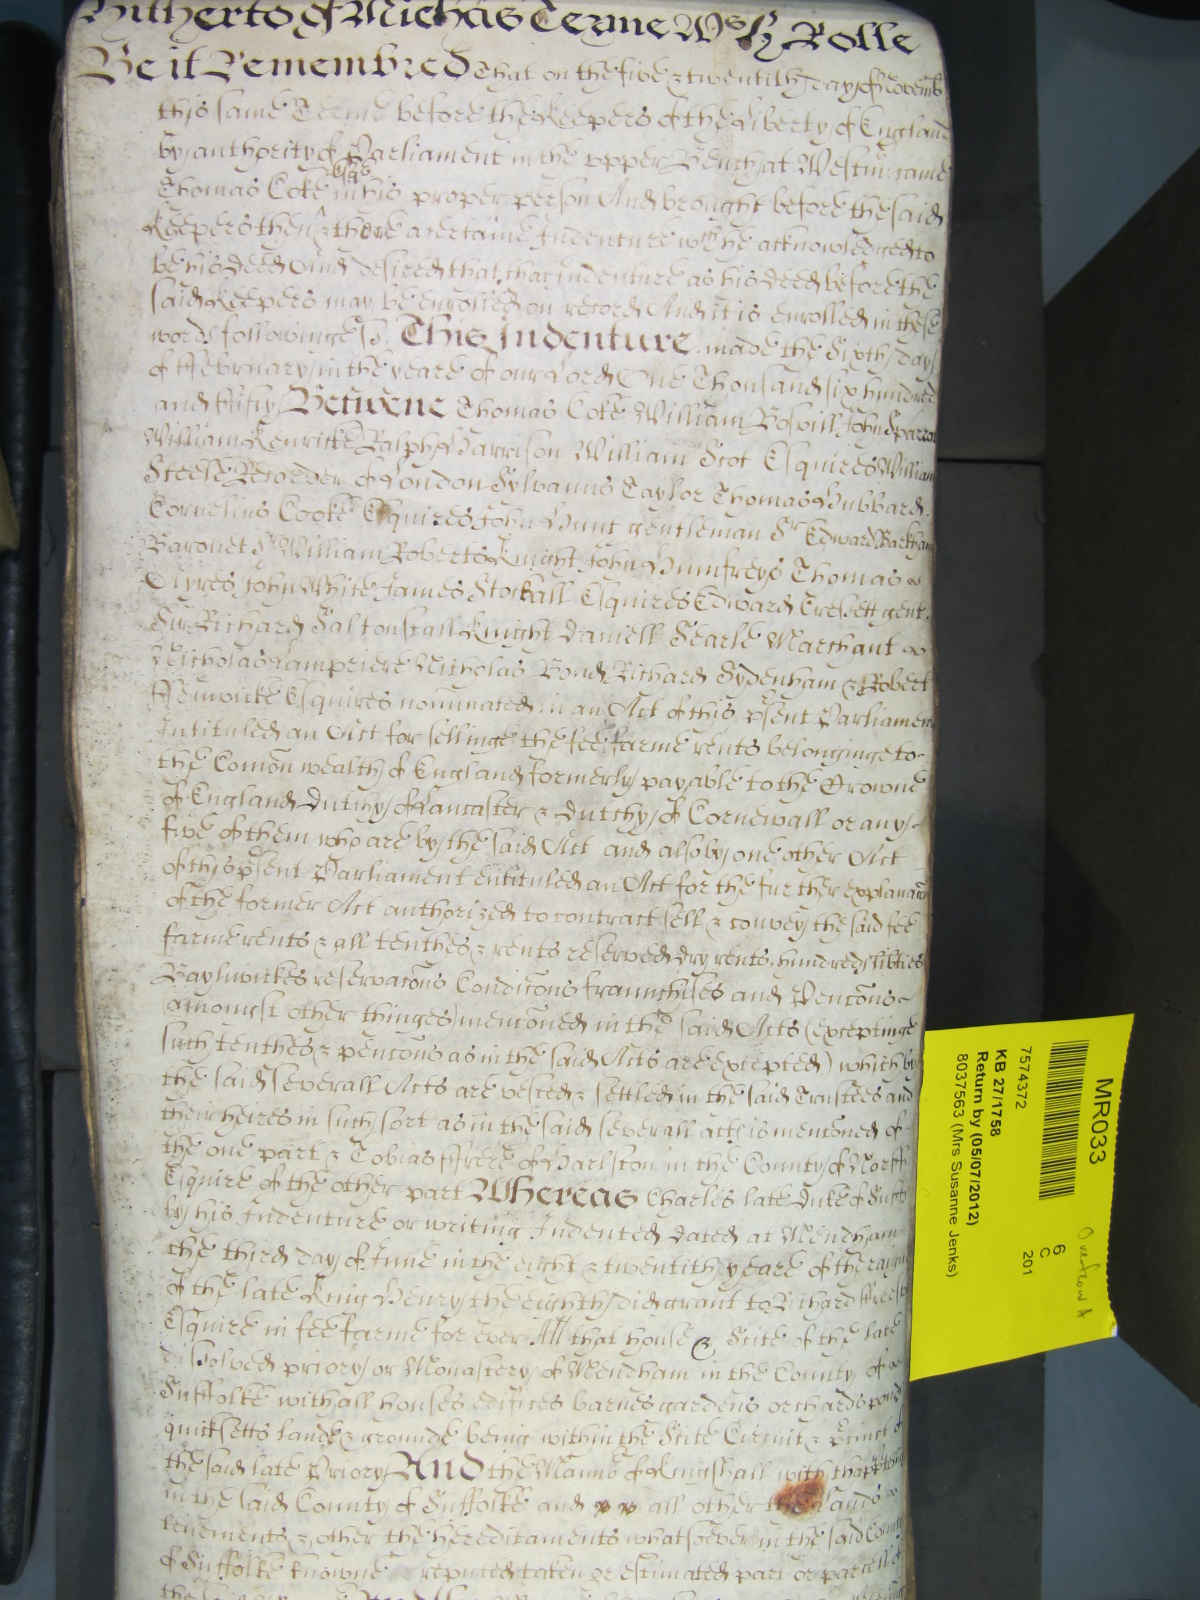 Hitherto of Michās Terme Wᵗʰ yᵉ Rolle
Be it Remembred That on the five & twentith day of Novemb
this same Terme before the Keepers of the Liberty of England
by authority of Parliament in the upper Bench at Westm̄ came
Thomas Coke Esqr in his proper person And brought before the said
Keepers then & there a certaine Indenture wch he acknowledged to
be his deed And desired that that Indenture as his deed before the
said Keepers may be enrolled on record And it is enrolled in these
words followinge ss. This Indenture made the Sixth day
of ffebruary in the yeare of our Lord One Thousand six hundred
and fifty Betweene Thomas Coke William Bosvill John Sparrow
William Kenricke Ralph Harrison William Scot Esquires William
Steele Recorder of London Sylvanus Taylor Thomas Hubbard
Cornelius Cooke Esquires John Hunt gentleman Sr Edward Barkham
Baronet Sr William Roberts Knight John Humfreys Thomas
Ayres John White James Stockall Esquires Edward Cressett gent.
Sir Richard Saltonstall Knight Daniell Searle Marchant
Nicholas Lampriere Nicholas Bond Richard Sydenham & Robert
ffenwicke Esquires nominated in an Act of this p̄sent Parliament
Intituled an Act for sellinge the fee farme rents belonginge to
the Com̄on wealth of England formerly payable to the Crowne
of England Dutchy of Lancaster & Dutchy of Cornewall or any
five of them who are by the said Act and also by one other Act
of this p̄sent Parliament entituled an Act for the further explanac̄
of the former Act authorized to contract sell & convey the said fee
farme rents & all tenthes & rents reserved dry rents hundreds lib̄ties
Bayliwickes reservac̄ons Condic̄ons fraunchises and Penc̄ons
amongst other thinges menc̄oned in the said Acts (exceptinge
such tenthes & penc̄ons as in the said Acts are excepted) which by
the said severall Acts are vested & settled in the said Trustees and
their heires in such sort as in the said severall acts is menc̄oned of
the one part & Tobias ffrere of Harlston in the County of Norff
Esquire of the other part Whereas Charles late Duke of Suff
by his Indenture or writing Indented dated at Mendham
the third day of June in the eight & twentith yeare of the raigne
of the late King Henry the eighth did grant to Richard ffreeston
Esquire in fee farme for ever All that house & Scite of the late
dissolved priory or Monastery of Mendham in the County of
Suffolke with all houses edifices barnes gardens orchards pond
quicksetts lande & grounde being within the Scite Circuit & p̄cinct of
the said late Priory And the Mannor of Kingshall with thapptenn
in the said County of Suffolke and all other the Lands
tenements & other the hereditaments whatsoever in the said County
of Suffolke knowne reputed taken or estimated part or parcell of
MR033
7574372
KB 27/1758
Return by (05/07/2012)
8037563 (Mrs Susanne Jenks)
6
C
201
Overflow A